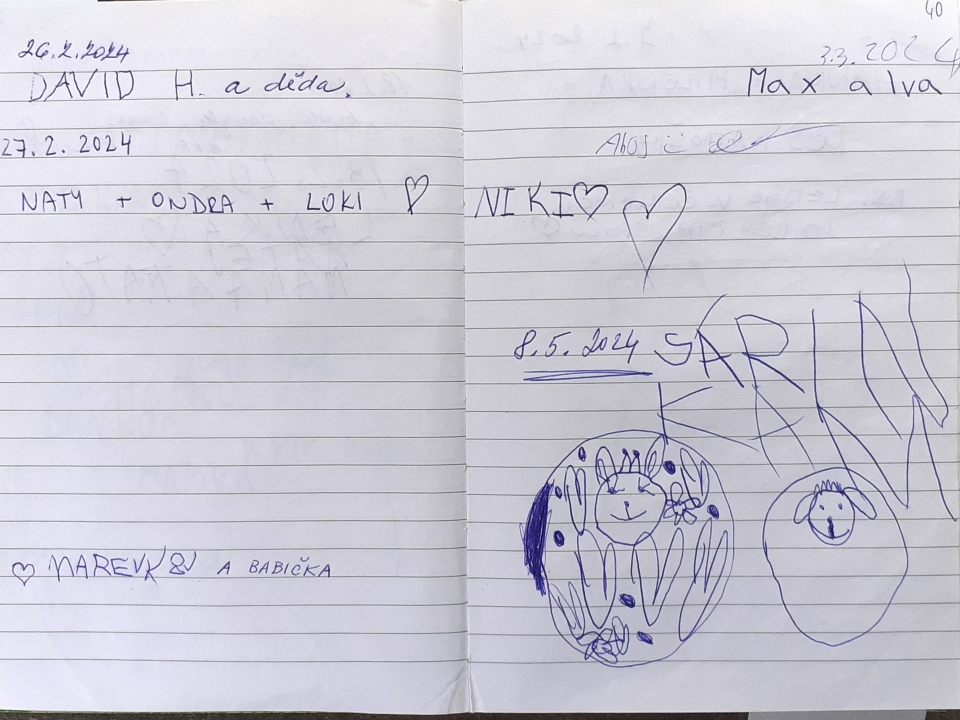 26.2.2024
DAVID H. a děda.
27.2.2024
NATY + ONDRA + LOKI ♡
♡ MAREVK& A BABIČKA
40
3.3.2024
Max a Iva
Ahoj :)
NIKI♡
8.5.2024 SÁRINKA